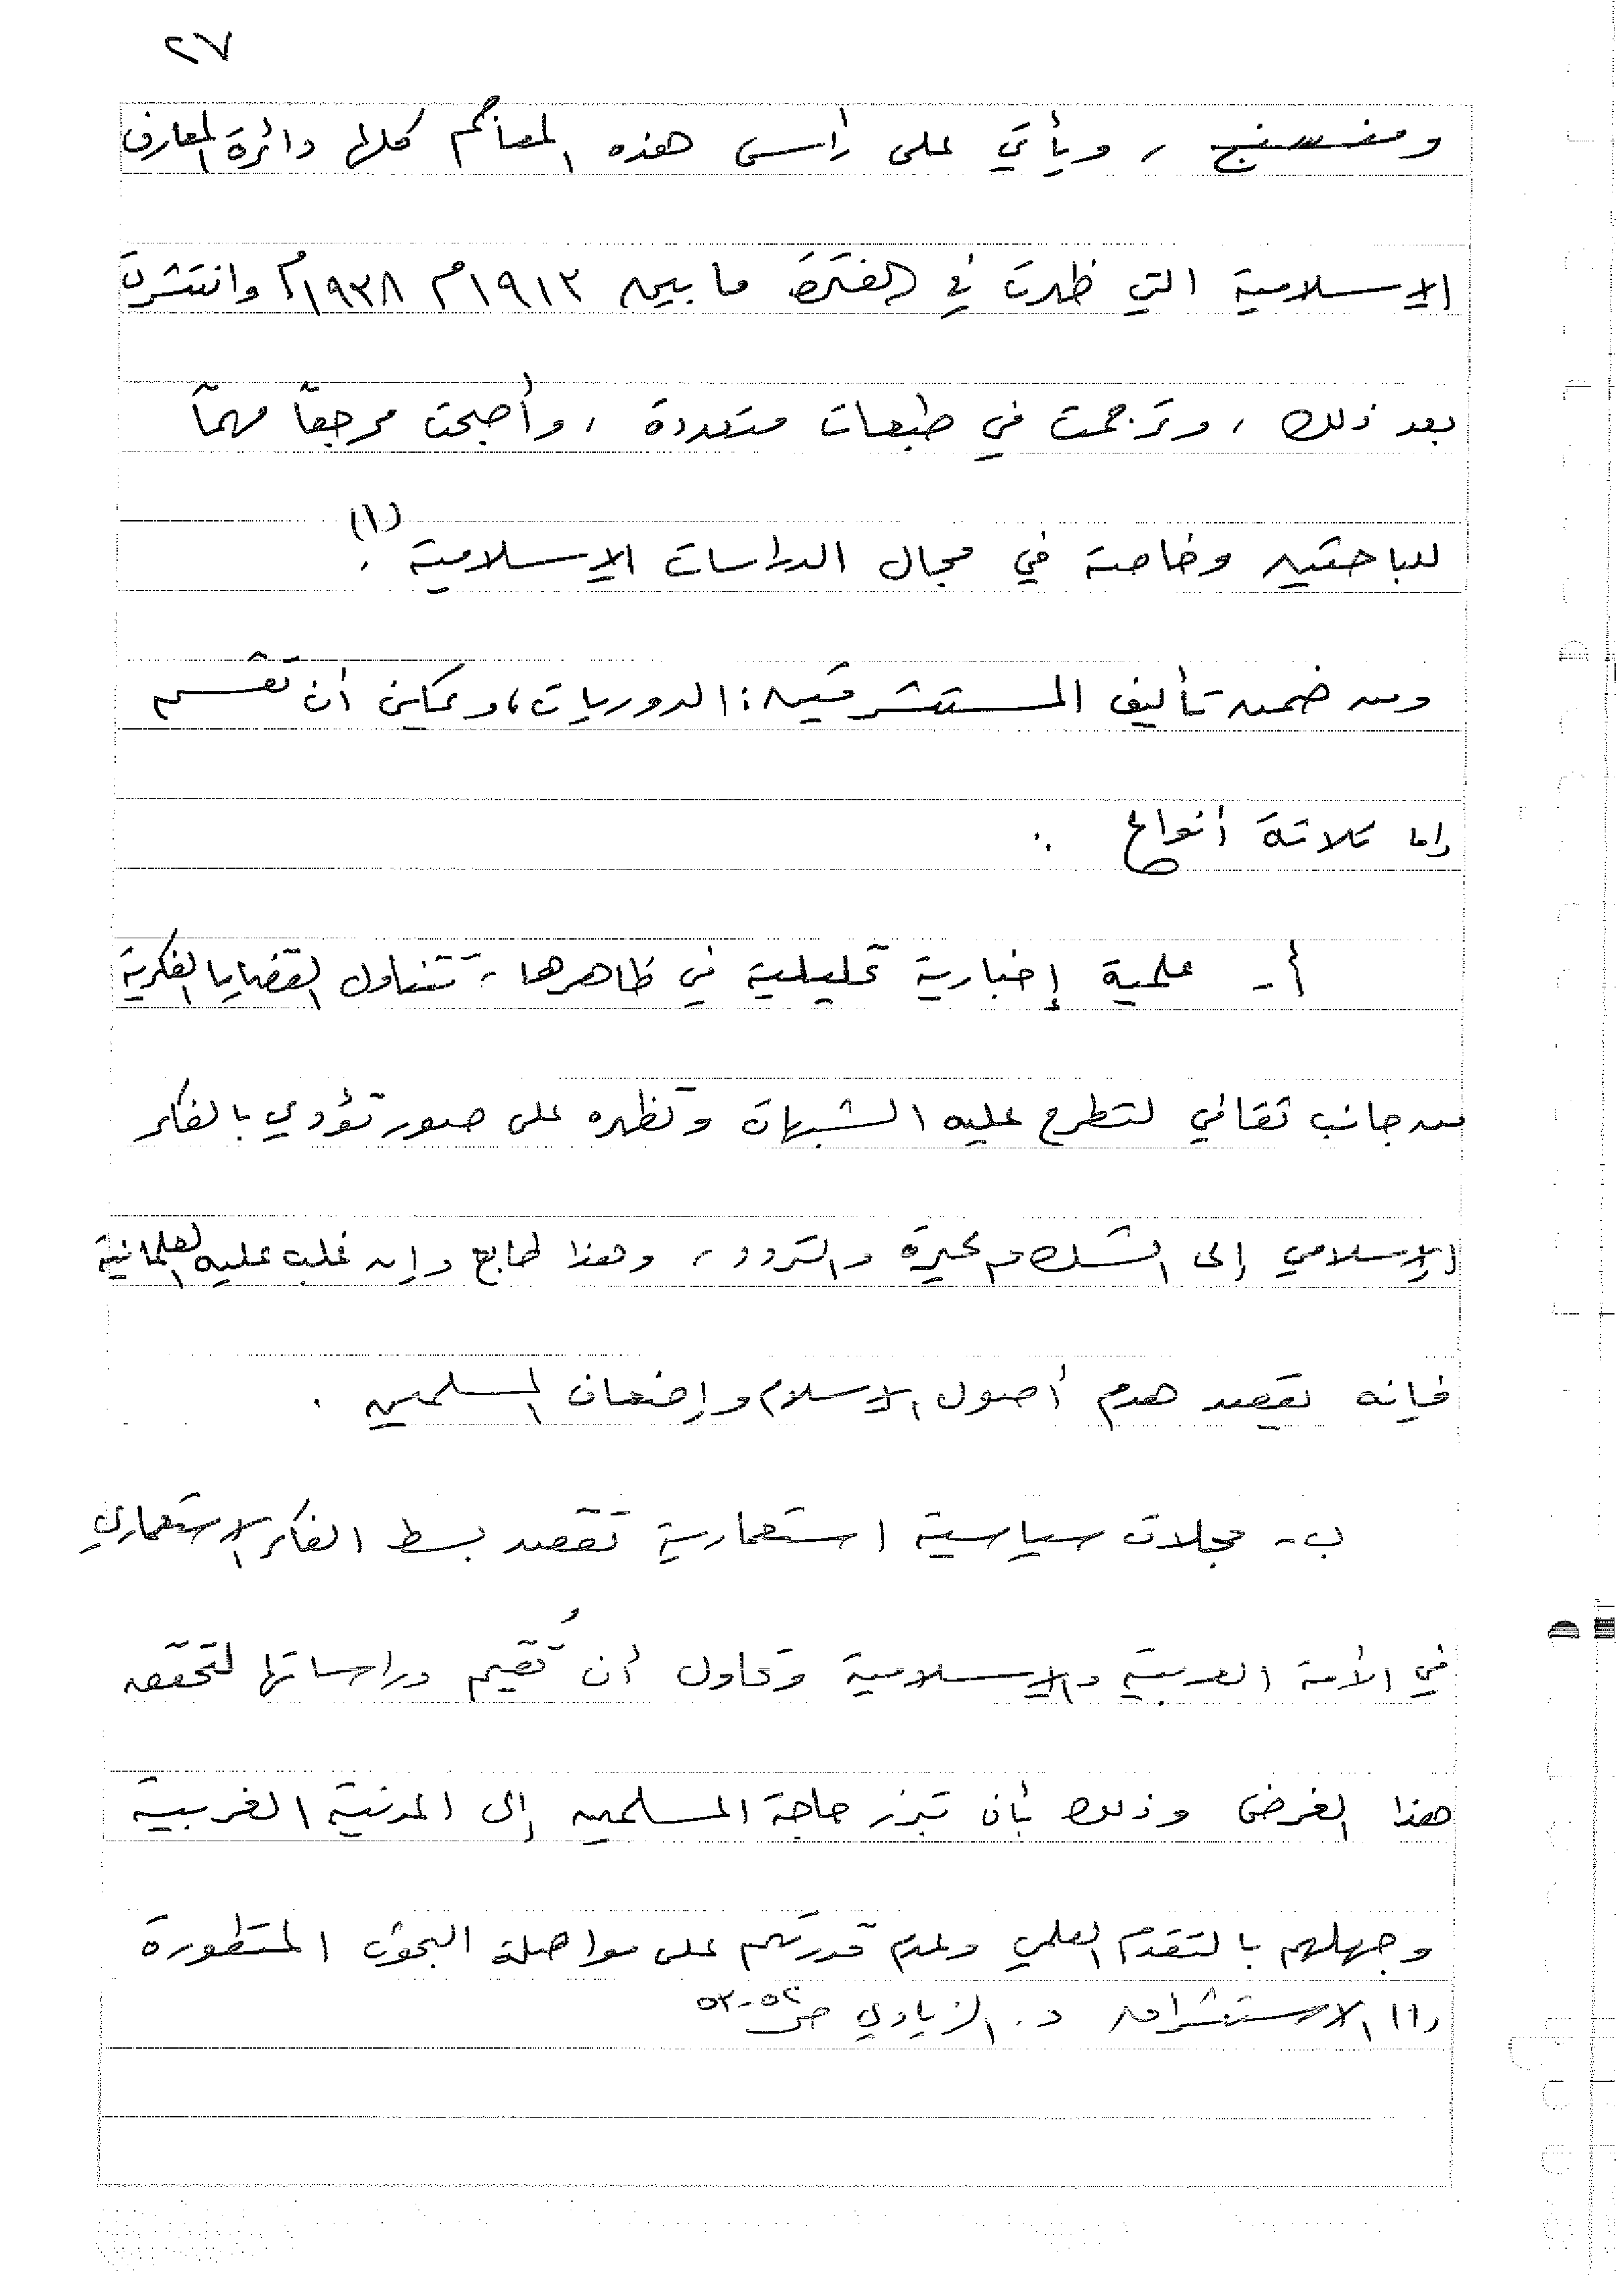 ٢٧
ومنسنج ، ويأتي على رأس هذه المعاجم كلها دائرة المعارف
الإسلامية التي ظهرت في الفترة ما بين ١٩١٣م ١٩٣٨م وانتشرت
بعد ذلك ، وترجمت في طبعات متعددة ، وأصبحت مرجعاً مهماً
للباحثين وخاصة في مجال الدراسات الإسلامية (١) .
ومن ضمن تأليف المستشرقين : الدوريات ، ويمكن أن تقسم
إلى ثلاثة أنواع :
أ - علمية إخبارية تحليلية في ظاهرها ، تتناول القضايا الفكرية
من جانب ثقافي لتطرح عليه الشبهات وتظهره على صور تؤدي بالفكر
الإسلامي إلى الشك والحيرة والتردد ، وهذا طابع وإن غلب عليه العلمانية
فإنه يقصد هدم أصول الإسلام وإضعاف المسلمين .
ب - مجلات سياسية استعمارية تقصد بسط الفكر الاستعماري
في الأمة العربية والإسلامية وتحاول أن تُقيم دراساتها لتحقق
هذا الغرض وذلك بأن تبرز حاجة المسلمين إلى المدنية الغربية
وجهلهم بالتقدم العلمي وعدم قدرتهم على مواصلة البحوث المتطورة
(١) الاستشراق د . الزيادي ص ٥٢-٥٣